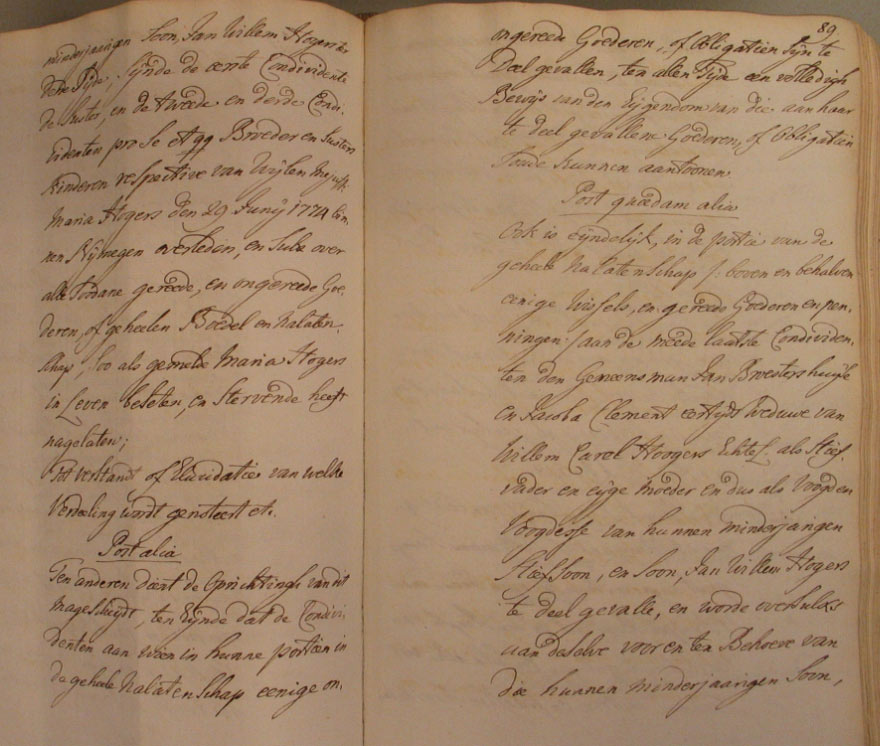 minderjarigen Soon, Jan Willem Hogers ter
eenre Sijde, sijnde de eerste Condividente
de suster, en de tweede en derde Condi-
videnten pro se et qq Broeder en Susters
Kinderen respective van Wijlen Mejuff.
Maria Hogers den 29 Junij 1774 bin-
nen Nijmegen overleden, en Sulx over
alle Sodane gereede, en ongereede Goe-
deren, of geheelen Boedel en Nalaten-
schap, soo als gemelde Maria Hogers
in Leven beseten, en Stervende heeft
nagelaten;
Tot verstandt of Elucidatie van welke
Verdeeling wordt gensteert etc.
Post alia
Ten anderen dient de Oprichtingh van dit
mageschijdt ten Eijnde dat de Condivi-
denten aan wien in hunne portien in
de geheele Nalatenschap eenige on-
89
ongereede Goederen, of Obligatien Sijn te
Deel gevallen, ten allen Tijde een volledigh
Bewijs van den Eijgendom van die aan haar
te deel gevallene Goederen, of Obligatien
soude kunnen aantoonen.
Post quaedam alia
Ook is eijndelijk, in de portie van de
geheele Nalatenschap /: boven en behalven
eenige Wissels, en gereede Goederen en pen-
ningen :/ aan de meede laatste Condividen-
ten den Gemeensman Jan Broestershuijse
en Jacoba Clement eertijds Weduwe van
Willem Carel Hoogers Echtel. als Stief-
vader en eijge moeder en dus als Voogd en
Voogdesse van hunnen minderjarigen
Stiefsoon, en Soon, Jan Willem Hogers
te deel gevalle, en worde oversulx
aan deselve voor en ten Behoeve van
die hunnen minderjaarigen Soon,